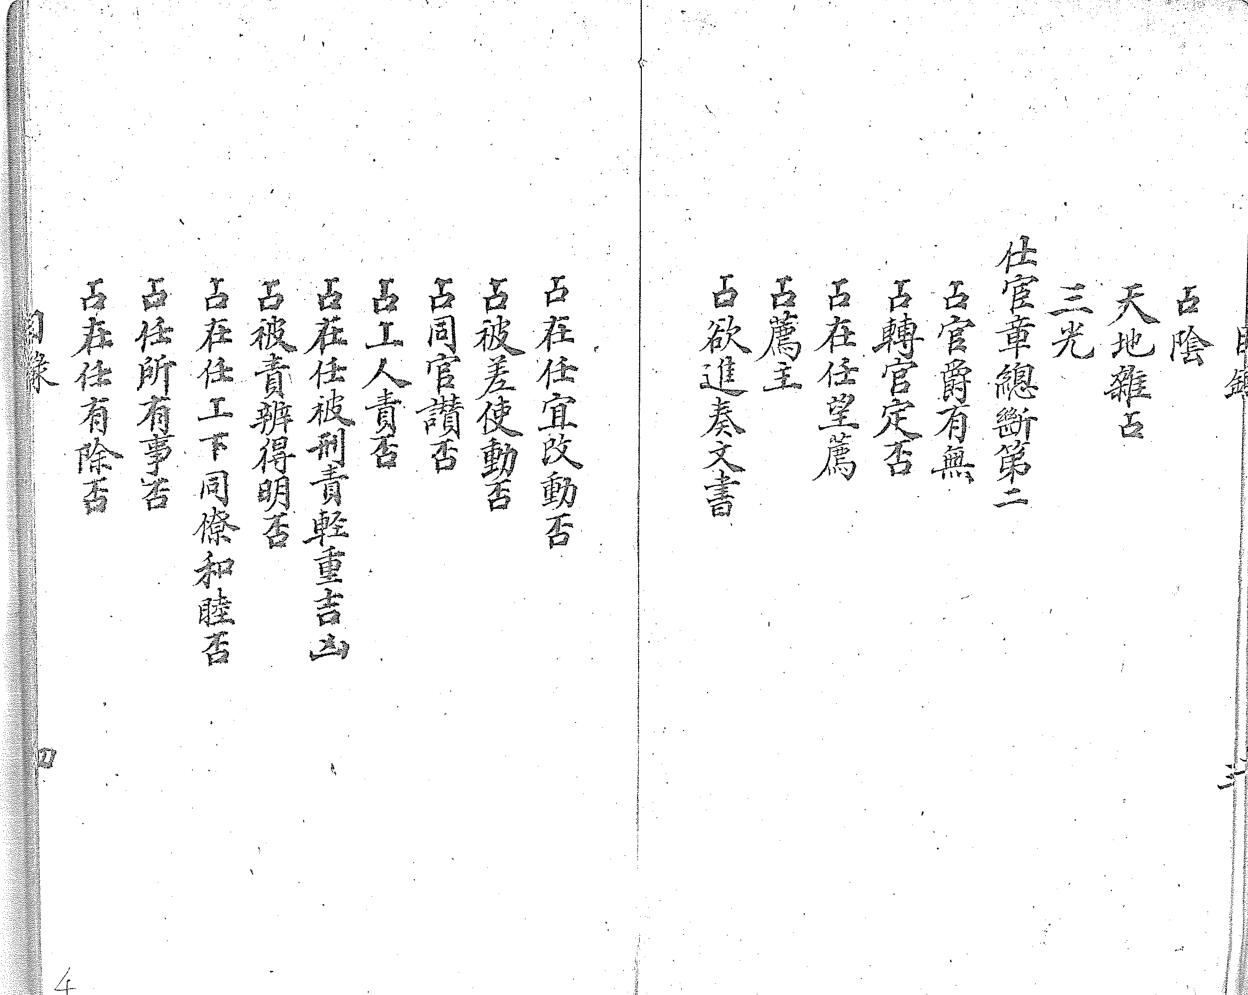 目錄
三
占陰
天地雜占
三光
仕宦章總斷第二
占官爵有無
占轉官定否
占在任望薦
占薦主
占欲進奏文書
占在任宜改動否
占被差使動否
占同官讃否
占工人責否
占在任被刑責輕重吉凶
占被責辨得明否
占在任工下同僚和睦否
占任所有事否
占在任有除否
目錄
四
4